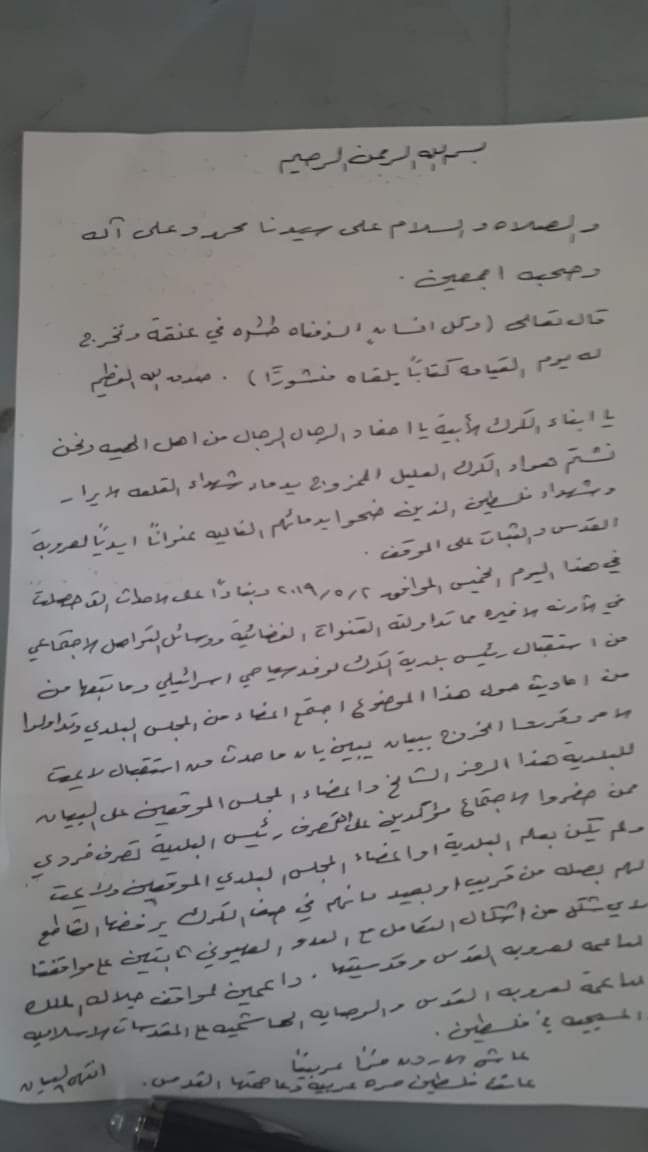 بسم الله الرحمن الرحيم
والصلاه والسلام على سيدنا محمد وعلى آله
وصحبه اجمعين .
قال تعالى (وكل انسان الزمناه طائره في عنقة ونخرج
له يوم القيامه كتابًا يلقاه منشورًا) . صدق الله العظيم
يا ابناء الكرك الأبية يا احفاد الرجال الرجال من اهل الهيه ونحن
نشتم هواء الكرك العليل الممزوج بدماء شهداء القلعه الابرار
وشهداء فلسطين الذين ضحوا بدمائهم الغاليه عنوانًا ابديًا لعروبة
القدس والثبات على الموقف .
في هذا اليوم الخميس الموافق ٢٠١٩/٥/٢ وبناءًا على الاحداث التي حصلت
في الآونه الاخيره مما تداولته القنوات الفضائية ووسائل التواصل الاجتماعي
من استقبال رئيس بلدية الكرك لوفد سياحي اسرائيلي وما تبعها من
من احاديث حول هذا الموضوع اجتمع اعضاء من المجلس البلدي وتداولوا
الامر وقرروا الخروج ببيان يبين بان ما حدث من استقبال لا يمت
للبلدية هذا الرمز الشامخ واعضاء المجلس الموقعين على البيان
ممن حضروا الاجتماع مؤكدين على تصرف رئيس البلدية تصرف فردي
ولم يكن بعلم البلدية او اعضاء المجلس البلدي الموقعين ولا يمت
لهم بصله من قريب او بعيد وانهم في صف الكرك برفضها القاطع
لاي شكل من اشكال التعامل مع العدو الصهيوني ثابتين على مواقفنا
الداعمه لعروبه القدس وقدسيتها . داعمين لمواقف جلاله الملك
الداعمة لعروبه القدس والوصايه الهاشميه على المقدسات الاسلاميه
والمسيحيه في فلسطين .
عاش الاردن حرًا عربيًا
عاشت فلسطين حره عربية وعاصمتها القدس . انتهى البيان